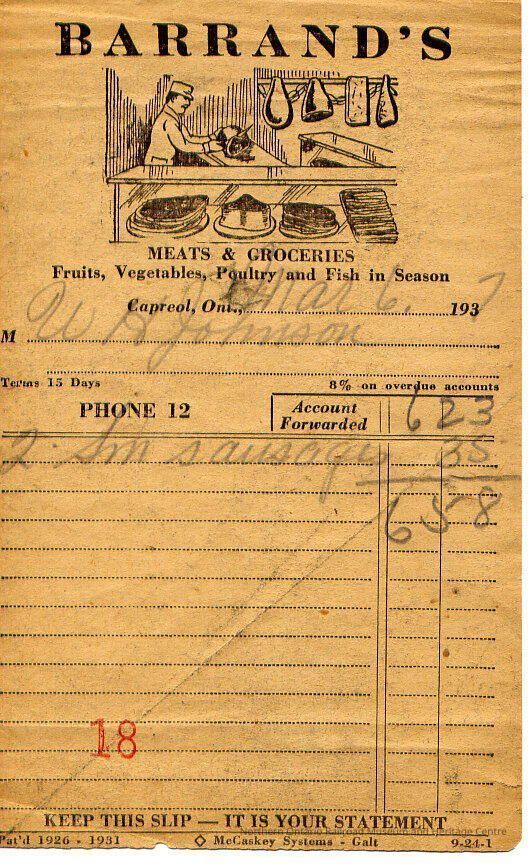 BARRAND'S
MEATS & GROCERIES
Fruits, Vegetables, Poultry and Fish in Season
Capreol, Ont., Mar 6, 1937
M W A Johnson
Terms 15 Days 8% on overdue accounts
PHONE 12 Account Forwarded 6 23
2 Sm sausages 35
6 58
18
KEEP THIS SLIP — IT IS YOUR STATEMENT
Northern Ontario Railroad Museum and Heritage Centre
Pat'd 1926 - 1931 ◇ McCaskey Systems - Galt 9-24-1